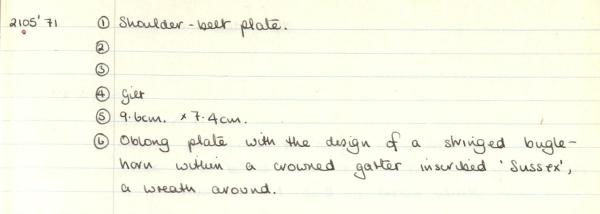 2105'71 ① Shoulder-belt plate.
②
③
④ Gilt
⑤ 9.6cm. x 7.4cm.
⑥ Oblong plate with the design of a stringed bugle-
horn within a crowned garter inscribed 'Sussex',
a wreath around.